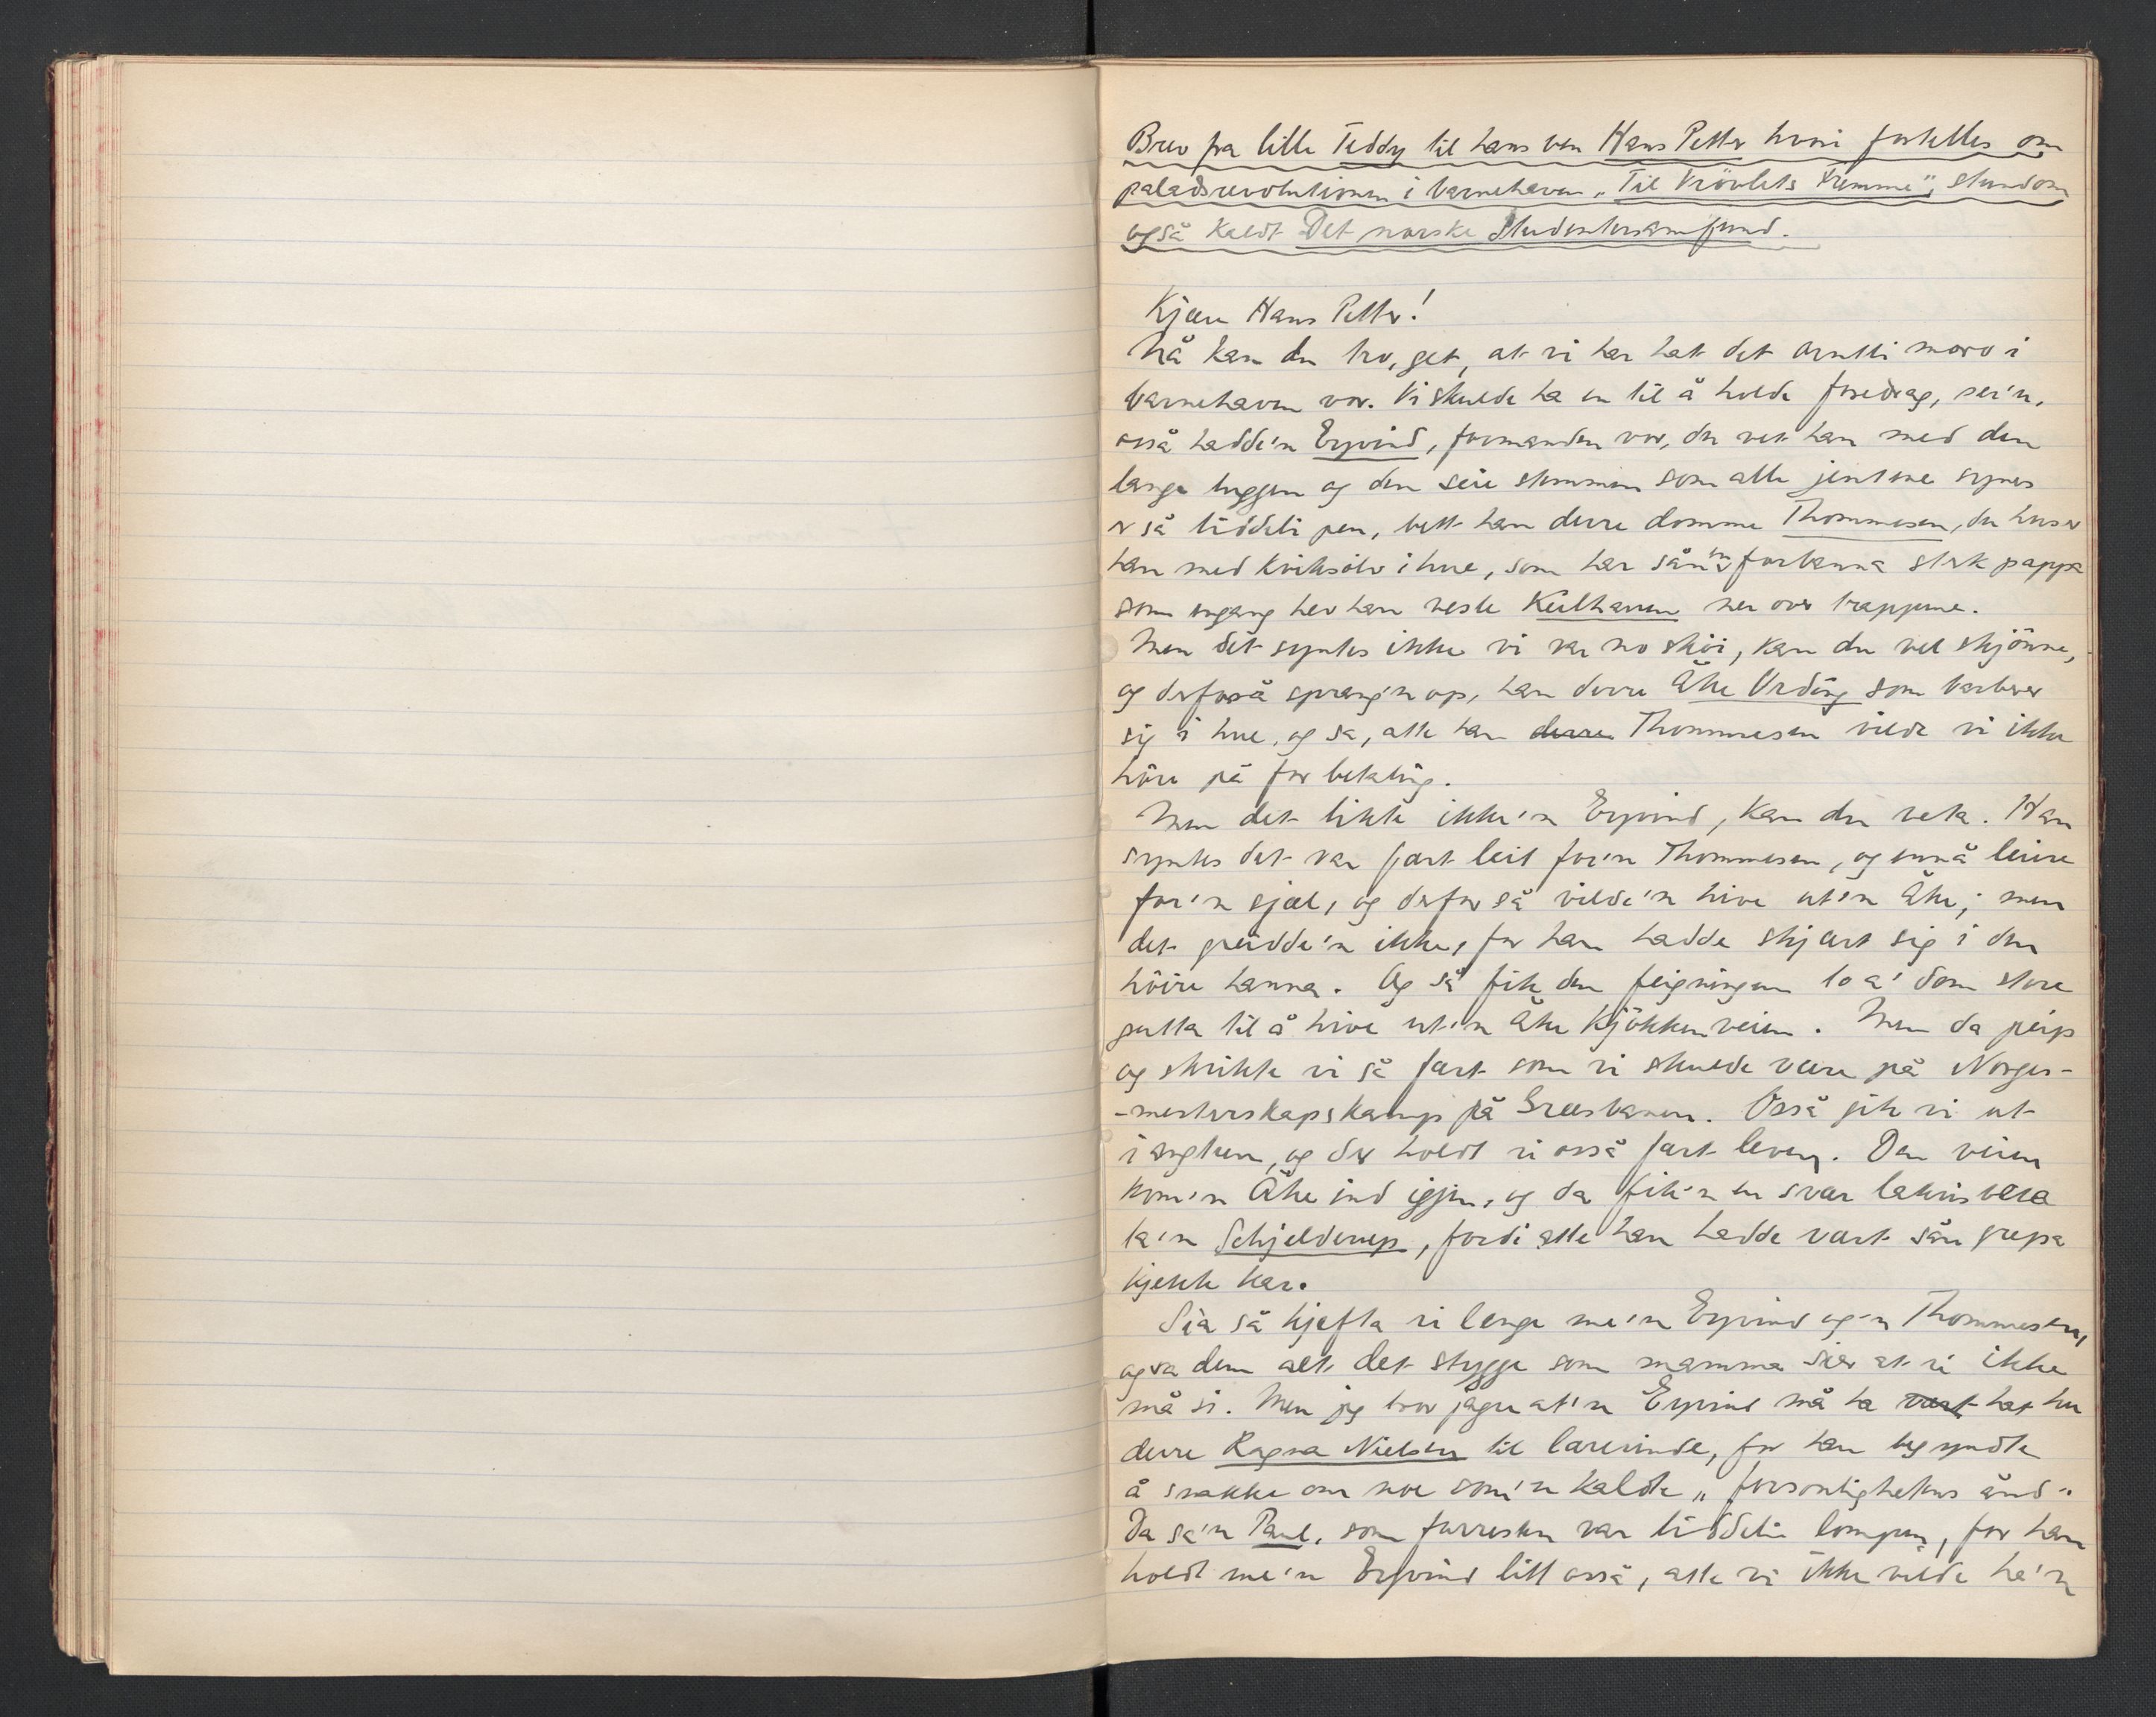 Brev fra lille Teddy til hans ven Hans Petter hvori fortelles om
paladsrevolutionen i barnehaven „Til Vrövlets Fremme", stundom
også kaldt Det norske Studentersamfund.
Kjære Hans Petter!
Nå kan du tro, get, at vi har hat det orntli moro i
barnehaven vor. Vi skulde ha en til å holde foredrag, ser'u,
osså hadde'n Eyvind, formanden vor, du vet han med den
lange luggen og den seie stemmen som alle jentene synes
er så tiddeli pen, bett han derre domme Thommesen, du husker
han med kviksölv i hue, som har sån en forbanna sterk pappa
som engang hev han vesle Keilhauen ner over trappene.
Men dét syntes ikke vi var no sköi, kan du vel skjönne,
og derforså sprang'n op, han derre Åke Ording som barberer
sig i hue, og sa, atte han derre Thommesen vilde vi ikke
höre på for betaling.
Men det likte ikke'n Eyvind, kan du veta. Han
syntes det var fært leit for'n Thommesen, og ennå leiere
for'n sjæl, og derfor så vilde'n hive ut'n Åke; men
det greidde'n ikke, for han hadde skjært sig i den
höire hanna. Og så fik den feigningen to a' dom store
gutta til å hive ut'n Åke kjökkenveien. Men da peip
og skrikte vi så fært som vi skulde være på Norges-
-mesterskapskamp på Gressbanen. Osså gik vi ut
i angken, og der holdt vi osså fært leven. Den veien
kom'n Åke ind igjen, og da fik'n en svær lakris bere
ta'n Schjelderup, fordi atte han hadde vært sån grepa
kjekk kar.
Sia så kjefta vi lenge me'n Eyvind og'n Thommesen,
og sa dem alt det stygge som mamma sier at vi ikke
må si. Men jeg tror jagu at'n Eyvind må ha vært hat hu
derre Ragna Nielsen til lærerinde, for han begyndte
å snakke om noe som'n kaldte „forsonlighetens ånd".
Da sa'n Paul, som forresten var tiddeli lompen, for han
holdt me'n Eyvind litt osså, atte vi ikke vilde ha'n